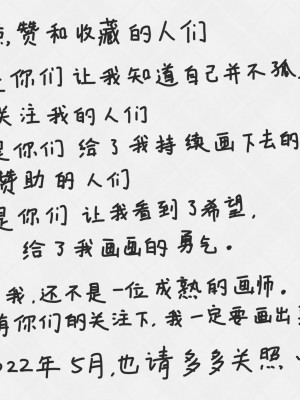 赞和收藏的人们
你们让我知道自己并不孤
关注我的人们
是你们 给了我持续画下去的
赞助的人们
是你们 让我看到了希望,
给了我画画的勇气。
我,还不是一位成熟的画师。
你们的关注下,我一定要画出
022年5月,也请多多关照